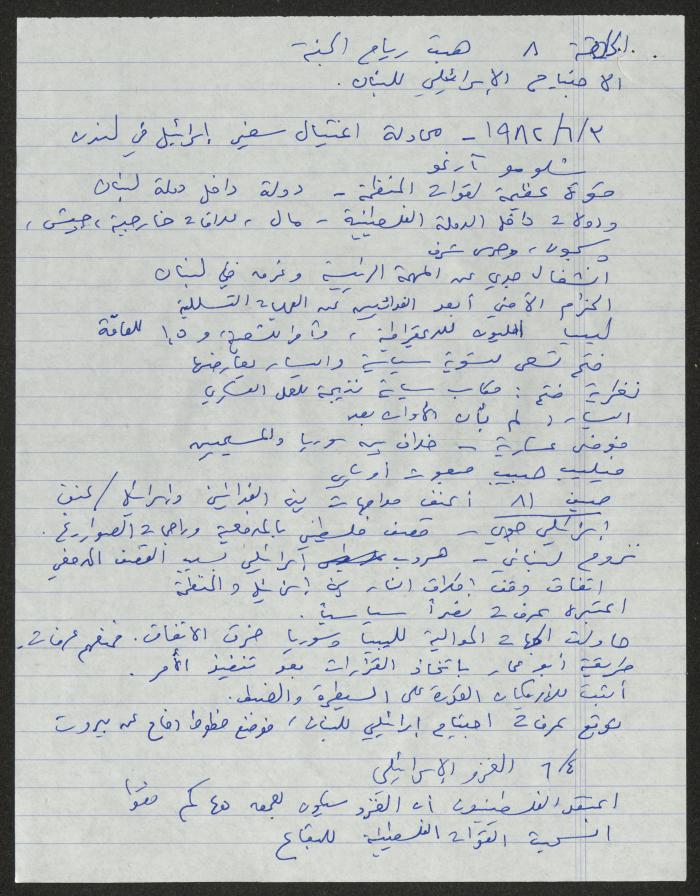 الحلقة ٨ هبت رياح الجنة
الاجتياح الإسرائيلي للبنان.
١٩٨٢/٦/٣ – محاولة اغتيال سفير إسرائيل في لندن
شلومو آرغو
قوة عظيمة لقوات المنظمة – دولة داخل دولة لبنان
ودولة داخل الدولة الفلسطينية – مال، علاقات خارجية، جيش،
سجون، وحرس شرف
انشغال جدي عن المهمة الرئيسية وغرق في لبنان
الحزام الأمني أبعد الفدائيين عن العمليات التسللية
ليبيا المليون للديمقراطية، و للشعبية، و ١,٥ للعامة
فتح تسعى لتسوية سياسية واليسار يعارضها
نظرية فتح: مكاسب سياسية نتيجة للعمل العسكري
اليسار: لم يأن الأوان بعد
فوضى عسكرية – خلاف بين سوريا والمسيحيين
فيليب حبيب مبعوث أمريكي
صيف ٨١ أعنف مواجهات بين الفدائيين وإسرائيل / عنف
إسرائيلي جوي – قصف فلسطيني بالمدفعية وراجمات الصواريخ.
نزوح لبناني – هروب إسرائيلي بسبب القصف المدفعي
اتفاق وقف إطلاق النار بين إسرائيل والمنظمة
اعتبره عرفات نصراً سياسياً.
حاولت الجهات الموالية لليبيا وسوريا خرق الاتفاق. فمنعهم عرفات.
طريقة أبو عمار باتخاذ القرارات بعد تنفيذ الأمر.
أثبت للأمريكان القدرة على السيطرة والضبط.
توقع عرفات اجتياح إسرائيلي للبنان، فوضع خطوط دفاع عن بيروت
٦/٤ الغزو الإسرائيلي
اعتقد الفلسطينيون أن الغزو سيكون
انسحبت القوات الفلسطينية للبقاع